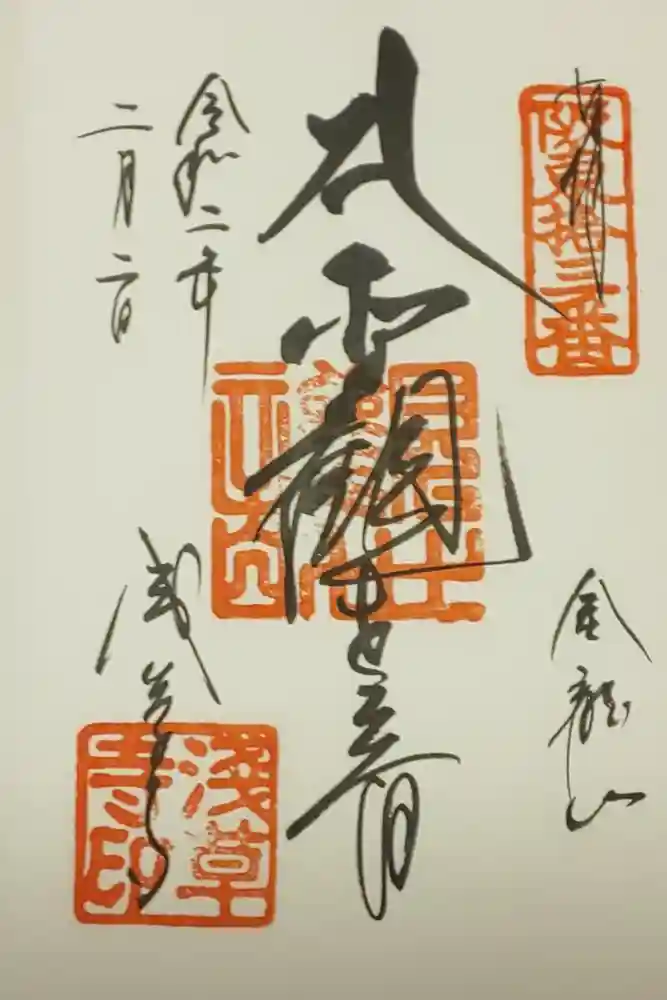 奉拝
阪東拾三番
金龍山
聖観世音
令和二年
二月二日
浅草寺
浅草
寺印